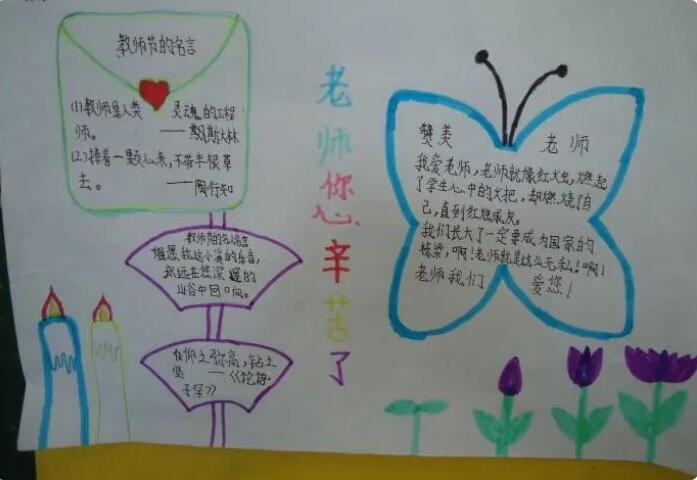 教师节的名言
(1)教师是人类 灵魂的工程
师。 ——斯大林
(2)捧着一颗心来,不带半根草
去。 ——陶行知
教师节的名言
但愿我这小溪的乐音,
永远在您深邃的
山谷中回响。
仰之弥高,钻之
坚 ——《论语·
子罕》
老师您辛苦了
赞美 老师
我爱老师,老师就像红火虫,燃起
了学生心中的火把,却燃烧了自
己,直到红烛成灰。
我们长大了一定要成为国家的
栋梁,啊!老师就是这么无私!啊!
老师我们 爱您!